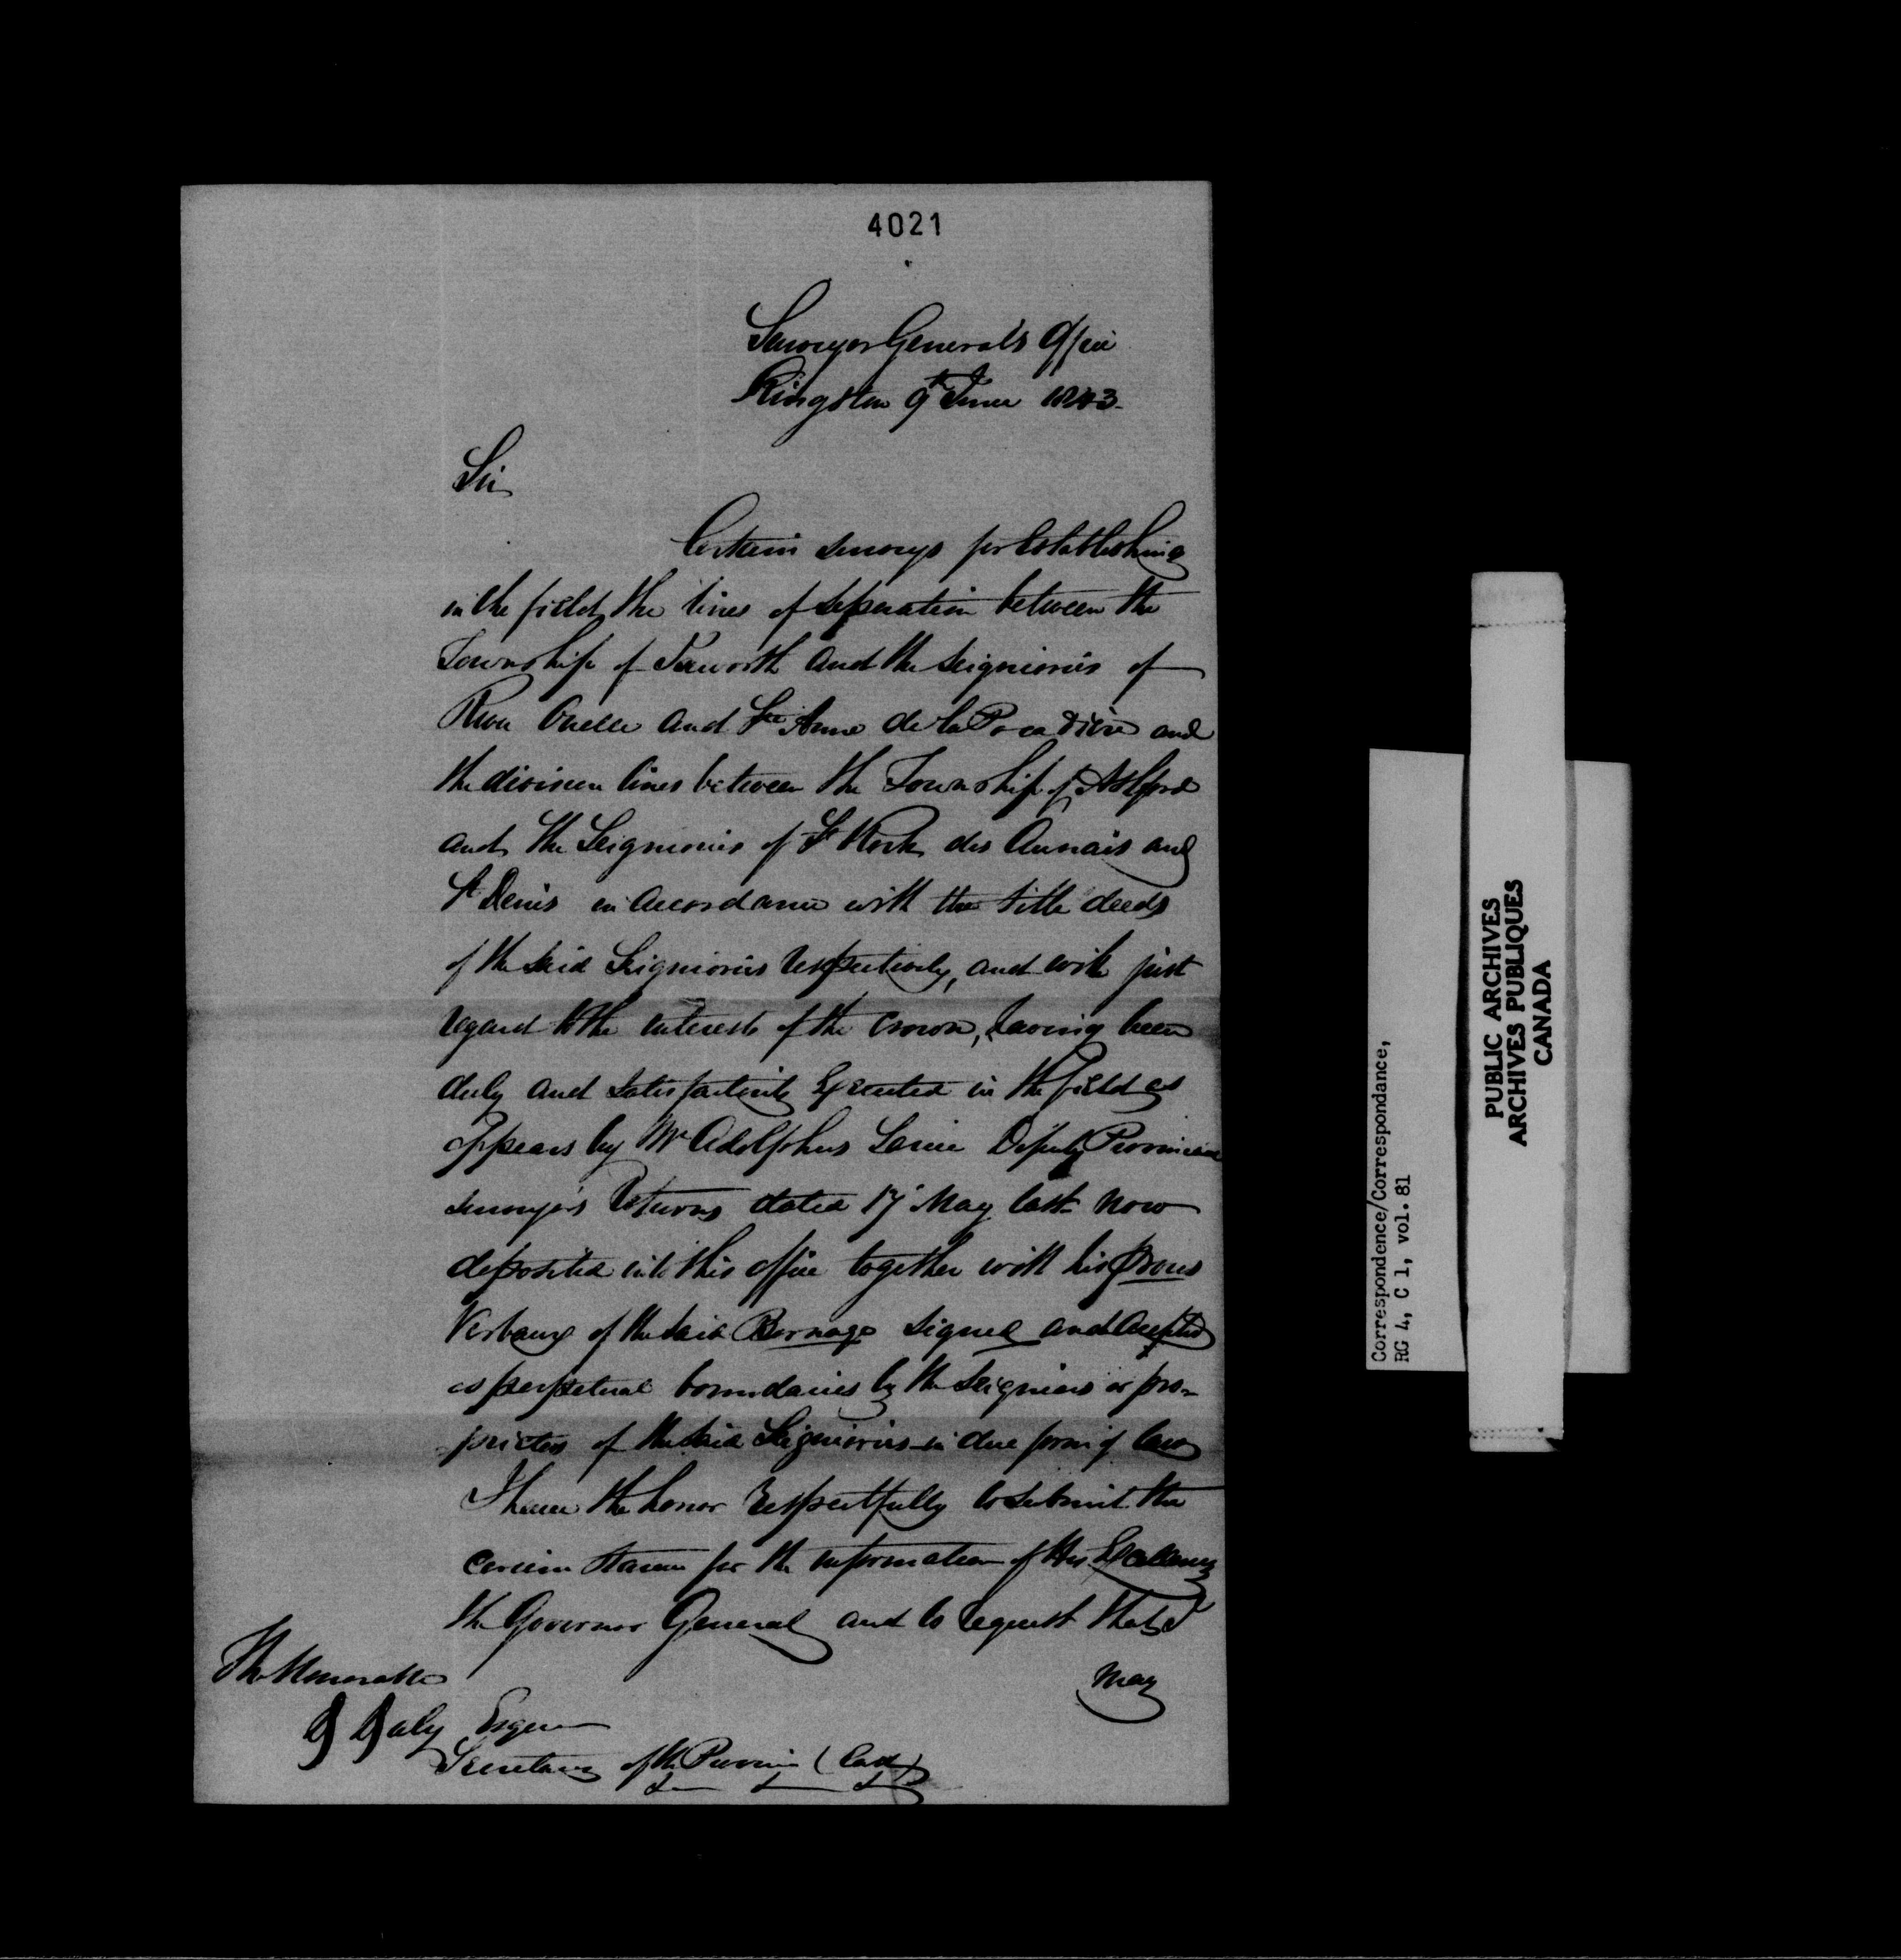 4021
Surveyor General's Office
Kingston 9th June 1843.
Sir
Certain surveys for Establishing
in the field, the lines of separation between the
Township of Ixworth and the Seigniories of
River Ouelle and Ste Anne de la Pocatière and
the division lines between the Township of Ashford
and the Seigniories of St Roch des Aunais and
St Denis in accordance with the title deeds
of the said Seigniories respectively, and with just
regard to the interests of the Crown, having been
duly and satisfactorily Executed in the field as
appears by Mr Adolphus Larue Deputy Provincial
Surveyor's Returns dated 17 May last now
deposited into this office together with his Procès
Verbaux of the said Bornage signed and accepted
as perpetual boundaries by the Seigniors or pro-
prietors of the said Seigniories in due form of law
I have the honor Respectfully to submit the
circumstance for the information of His Excellency
the Governor General and to request that I
may
The Honorable
D Daly Esqr
Secretary of the Province (East)
Correspondence/Correspondance,
RG 4, C 1, vol. 81
PUBLIC ARCHIVES
ARCHIVES PUBLIQUES
CANADA